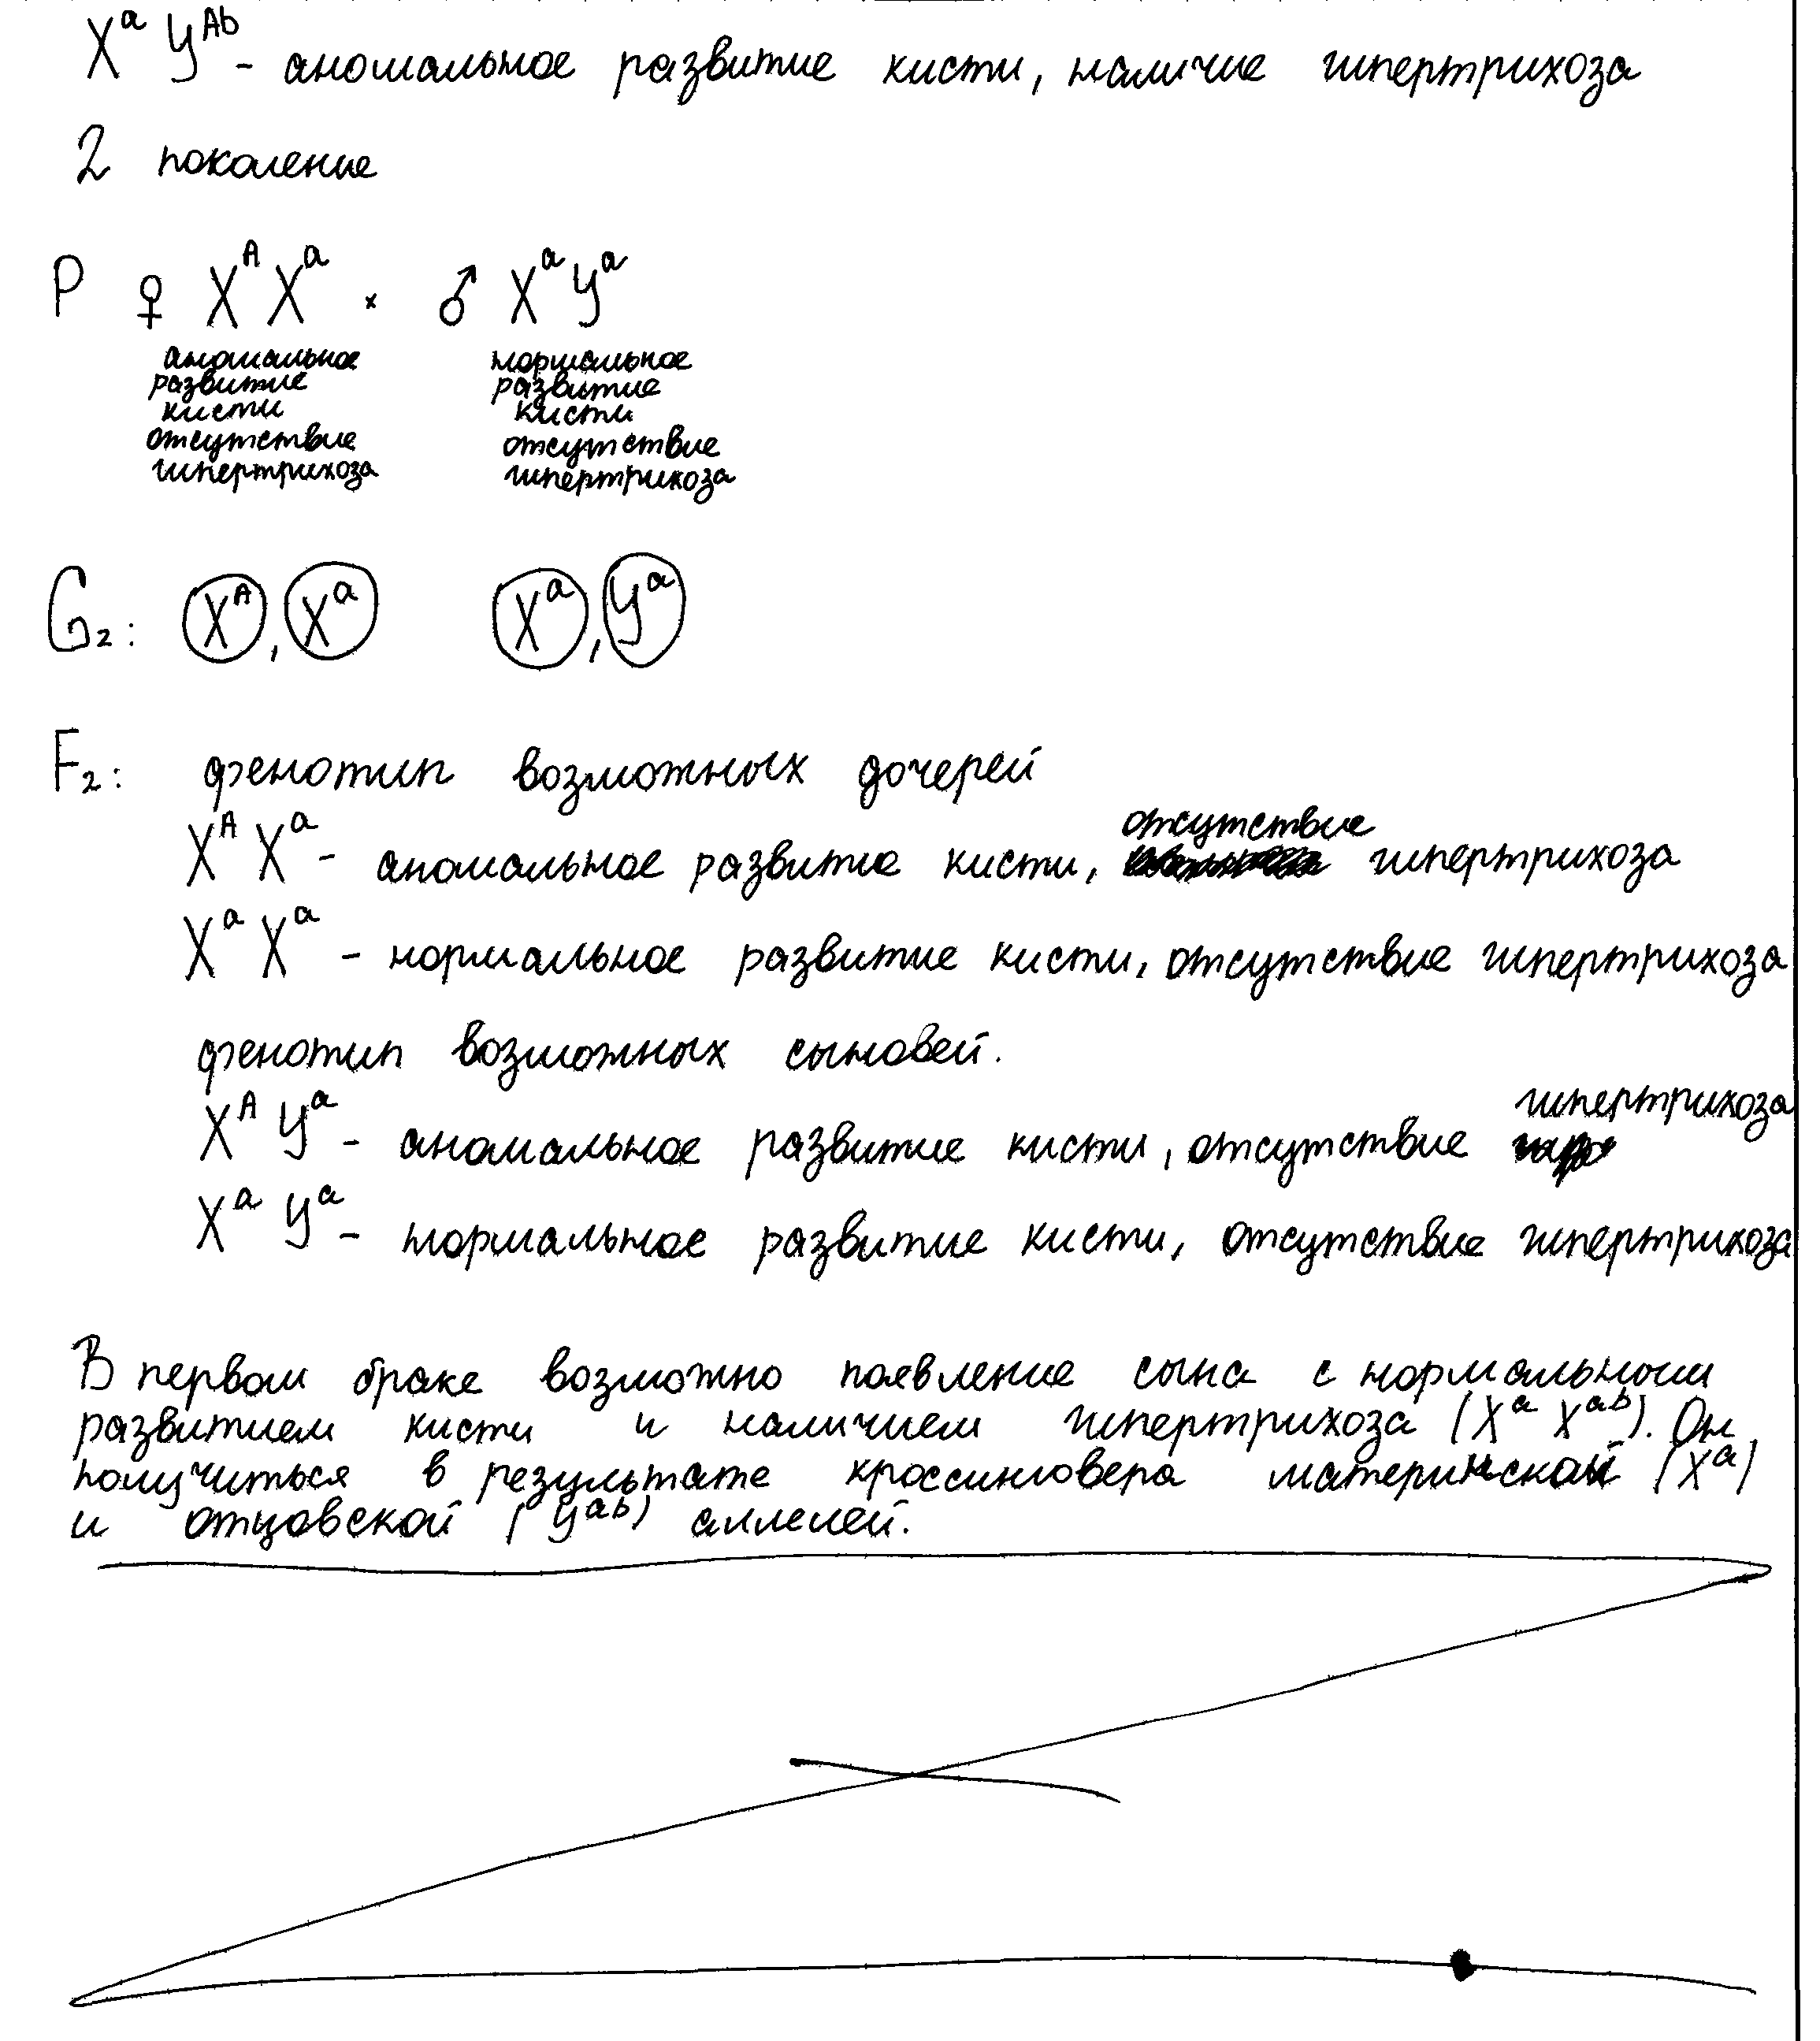 X^a У^Ab - аномальное развитие кисти, наличие гипертрихоза
2 поколение
P ♀ X^A X^a × ♂ X^a У^a
аномальное развитие кисти отсутствие гипертрихоза
нормальное развитие кисти отсутствие гипертрихоза
G₂: X^A, X^a X^a, У^a
F₂: фенотип возможных дочерей
X^A X^a - аномальное развитие кисти, отсутствие гипертрихоза
X^a X^a - нормальное развитие кисти, отсутствие гипертрихоза
фенотип возможных сыновей.
X^A У^a - аномальное развитие кисти, отсутствие гипертрихоза
X^a У^a - нормальное развитие кисти, отсутствие гипертрихоза
В первом браке возможно появление сына с нормальным
развитием кисти и наличием гипертрихоза (X^a X^ab). Он
получиться в результате кроссинговера материнской (X^a)
и отцовской (У^ab) аллелей.